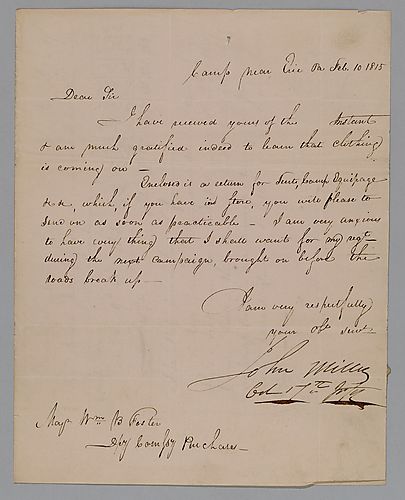 Camp near Erie Pa Feb. 10 1815
Dear Sir
I have received yours of the Instant
& am much gratified indeed to learn that clothing
is coming on —
Enclosed is a return for Tents, Camp Equipage
&c, which, if you have in store, you will please to
send on as soon as practicable — I am very anxious
to have every thing that I shall want for my regt
during the next campaign, brought on before the
roads break up —
I am very respectfully
your Obt Servt
John Miller
Col 17th Infy
Majr Wm B Foster
Dpy Comsy Purchases